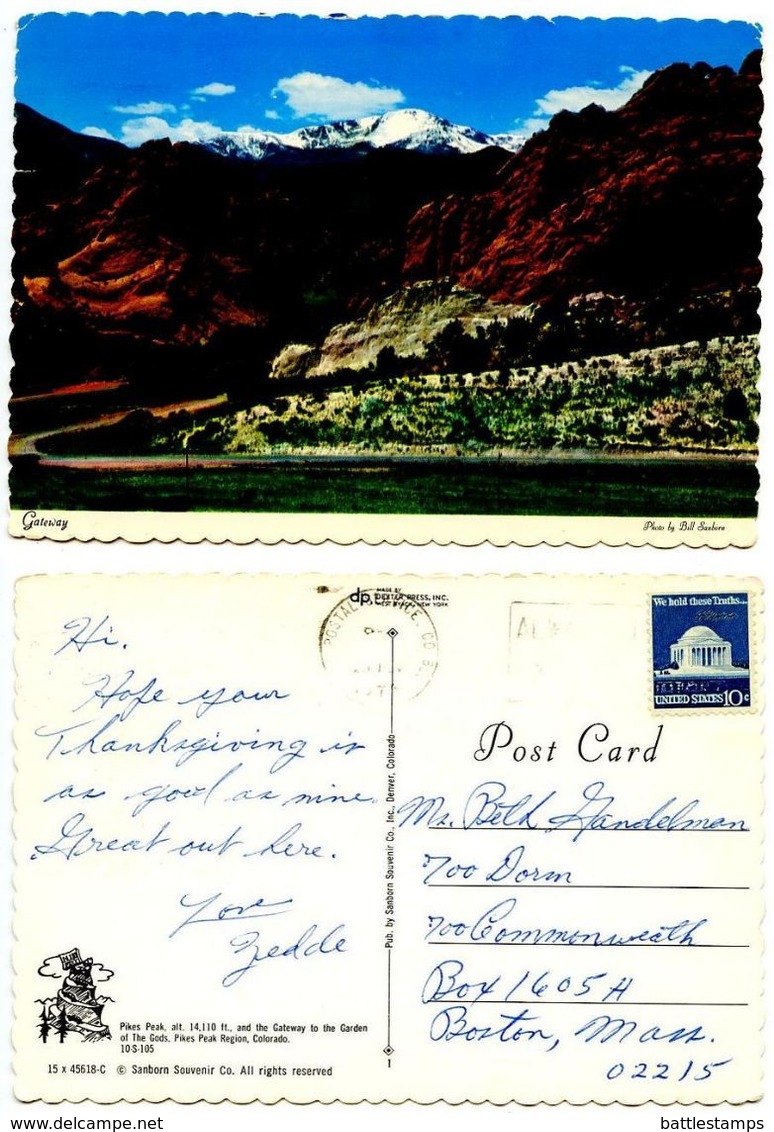 Gateway
Photo by Bill Sanborn
dp MADE BY
DEXTER PRESS, INC.
WEST NYACK, NEW YORK
Hi.
Hope your
Thanksgiving is
as good as mine.
Great out here.
Love
Zedde
Pikes Peak, alt. 14,110 ft., and the Gateway to the Garden
of The Gods, Pikes Peak Region, Colorado.
10-S-105
15 x 45618-C © Sanborn Souvenir Co. All rights reserved
Pub. by Sanborn Souvenir Co., Inc., Denver, Colorado
1
POSTAL CO
We hold these Truths...
UNITED STATES 10c
Post Card
Ms. Beth Handelman
700 Dorm
700 Commonweath
Box 1605 A
Boston, Mass.
02215
battlestamps